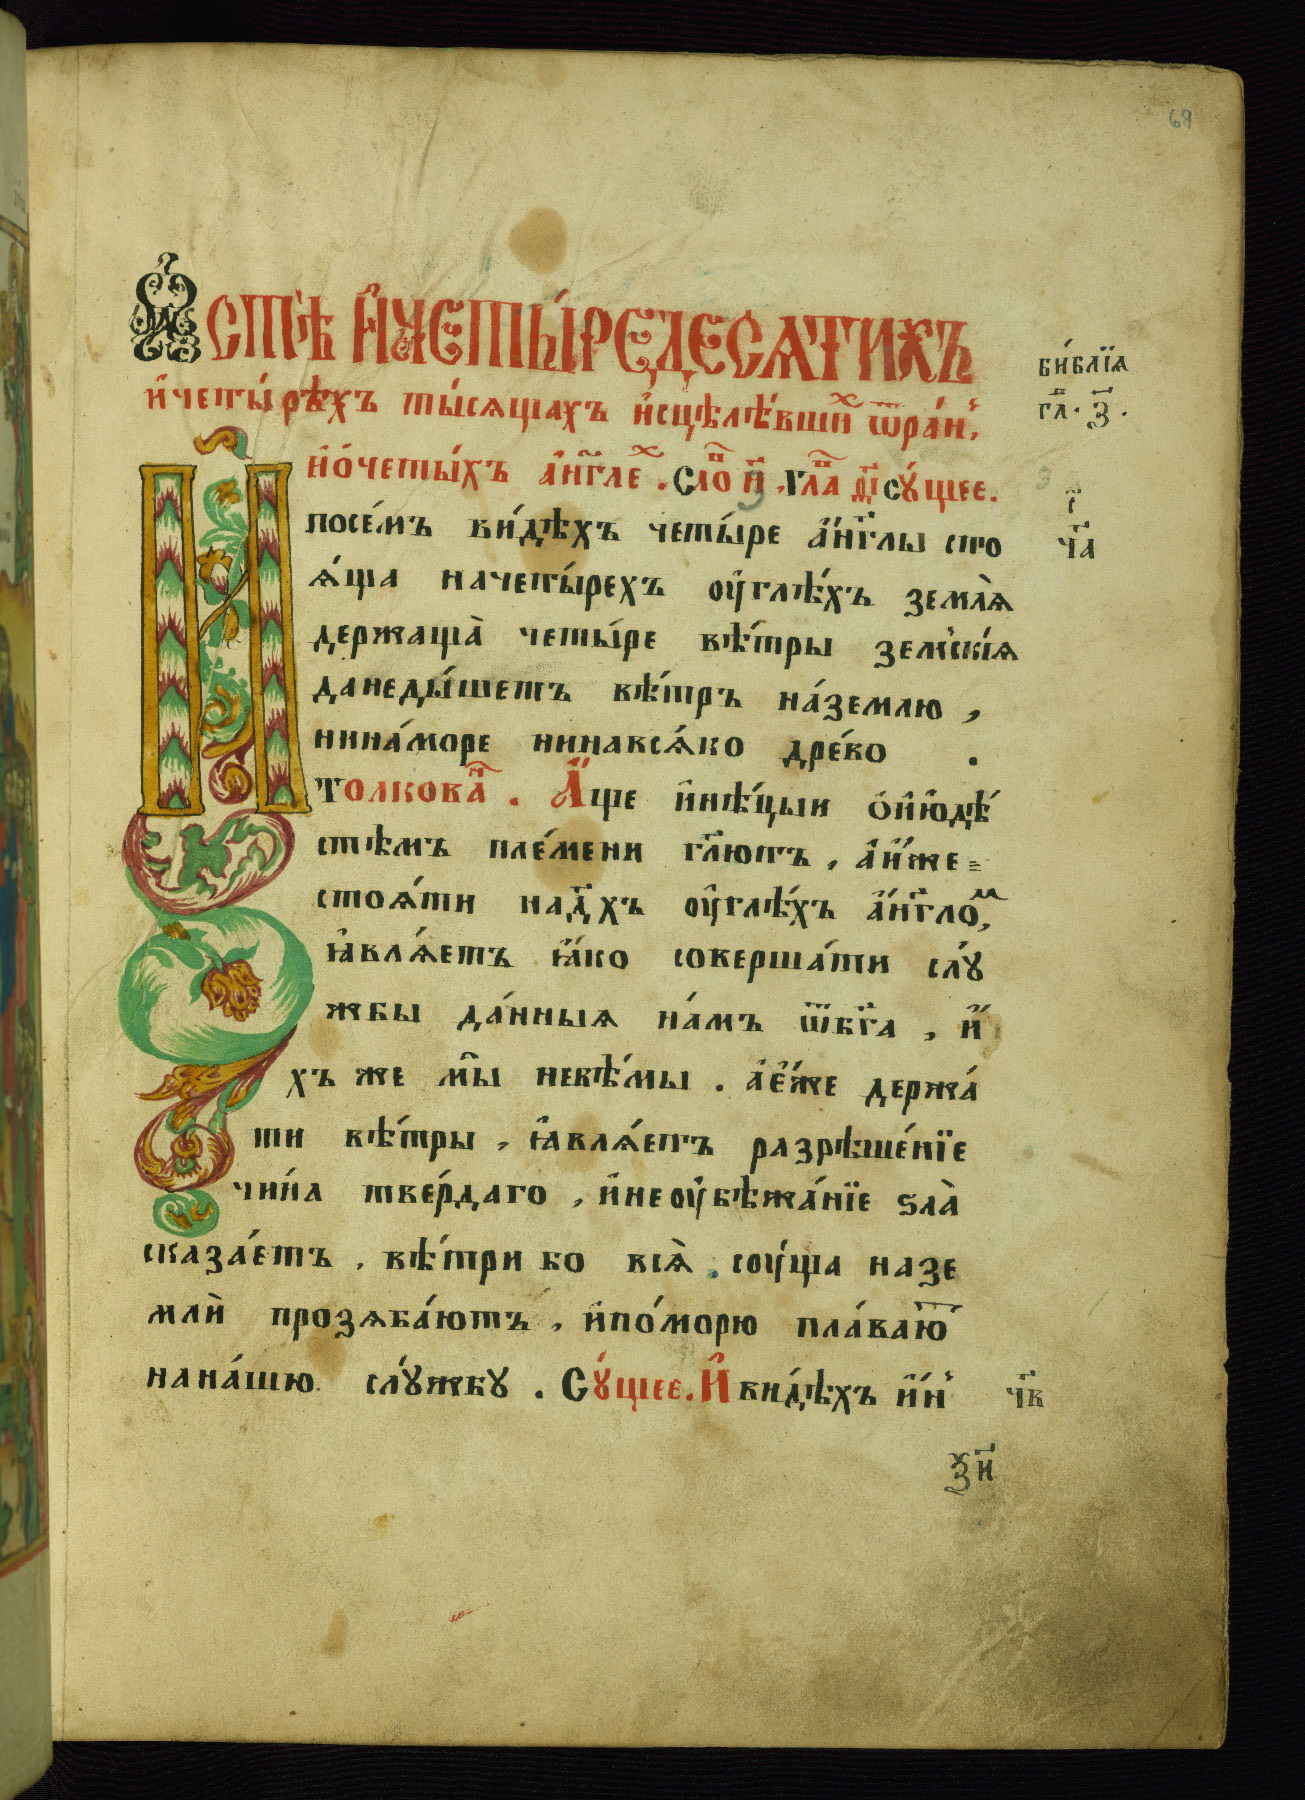 69
Ѡ стѣ и҆четы́редесѧтихъ
и҆четы́рѣхъ ты́сѧщахъ и҆сцѣлѣ́вшиⷯ ѿра́н,
и҆ѡ҆четы́хъ а҆́нг҃леⷯ. сло́ⷡ и҃, глаⷡ҇ д҃і сꙋ́щее.
библі́ѧ
гл҃. з҃.
посе́мъ ви́дѣхъ четы́ре а҆́нг҃лы сто
ч҃а
ѧ́ща начеты́рехъ оу҆глѣ́хъ землѧ̀
держаща̀ четы́ре вѣ́тры земскі́ѧ
данеды́шетъ вѣ́тръ на́землю,
нина́море нинавсѧ́ко дре́во .
толковаⷩ҇. А҆́ще и҆нѣ́цыи ѡ҆и҆ю҆дѣ́
стѣмъ пле́мени гл҃ютъ, а҆и҆́же
стоѧ́ти над̾хъ оу҆глѣ́хъ а҆́нг҃лоⷨ,
ꙗ҆влѧ́етъ ꙗ҆́ко соверша́ти слꙋ́
жбы да́нныѧ на́мъ ѿбг҃а, и҆́
хъ же мы̑ невѣ́мы. а҆е҆́же держа́
ти вѣ́тры, ꙗ҆влѧ́етъ разрѣше́нїе
чи́на тве́рдаго, и҆неоу҆бѣжа́нїе ѕла̀
сказа́етъ, вѣ́три бо всѧ̀, соу́ща назе
мли̑ прозѧба́ютъ, и҆по́морю пла́ваюⷮ
нана́шю слꙋ́жбꙋ. Сꙋ́щее. И҆ ви́дѣхъ и҆́н
ч҃в
ѯ҃и